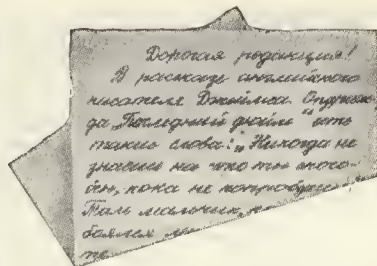 Дорогая редакция!
В рассказе английского
писателя Джеймса Олдридж-
да „Последний дюйм" есть
такие слова: „Никогда не
знаешь на что ты спосо-
бен, пока не попробуешь
мальчик,
боялся